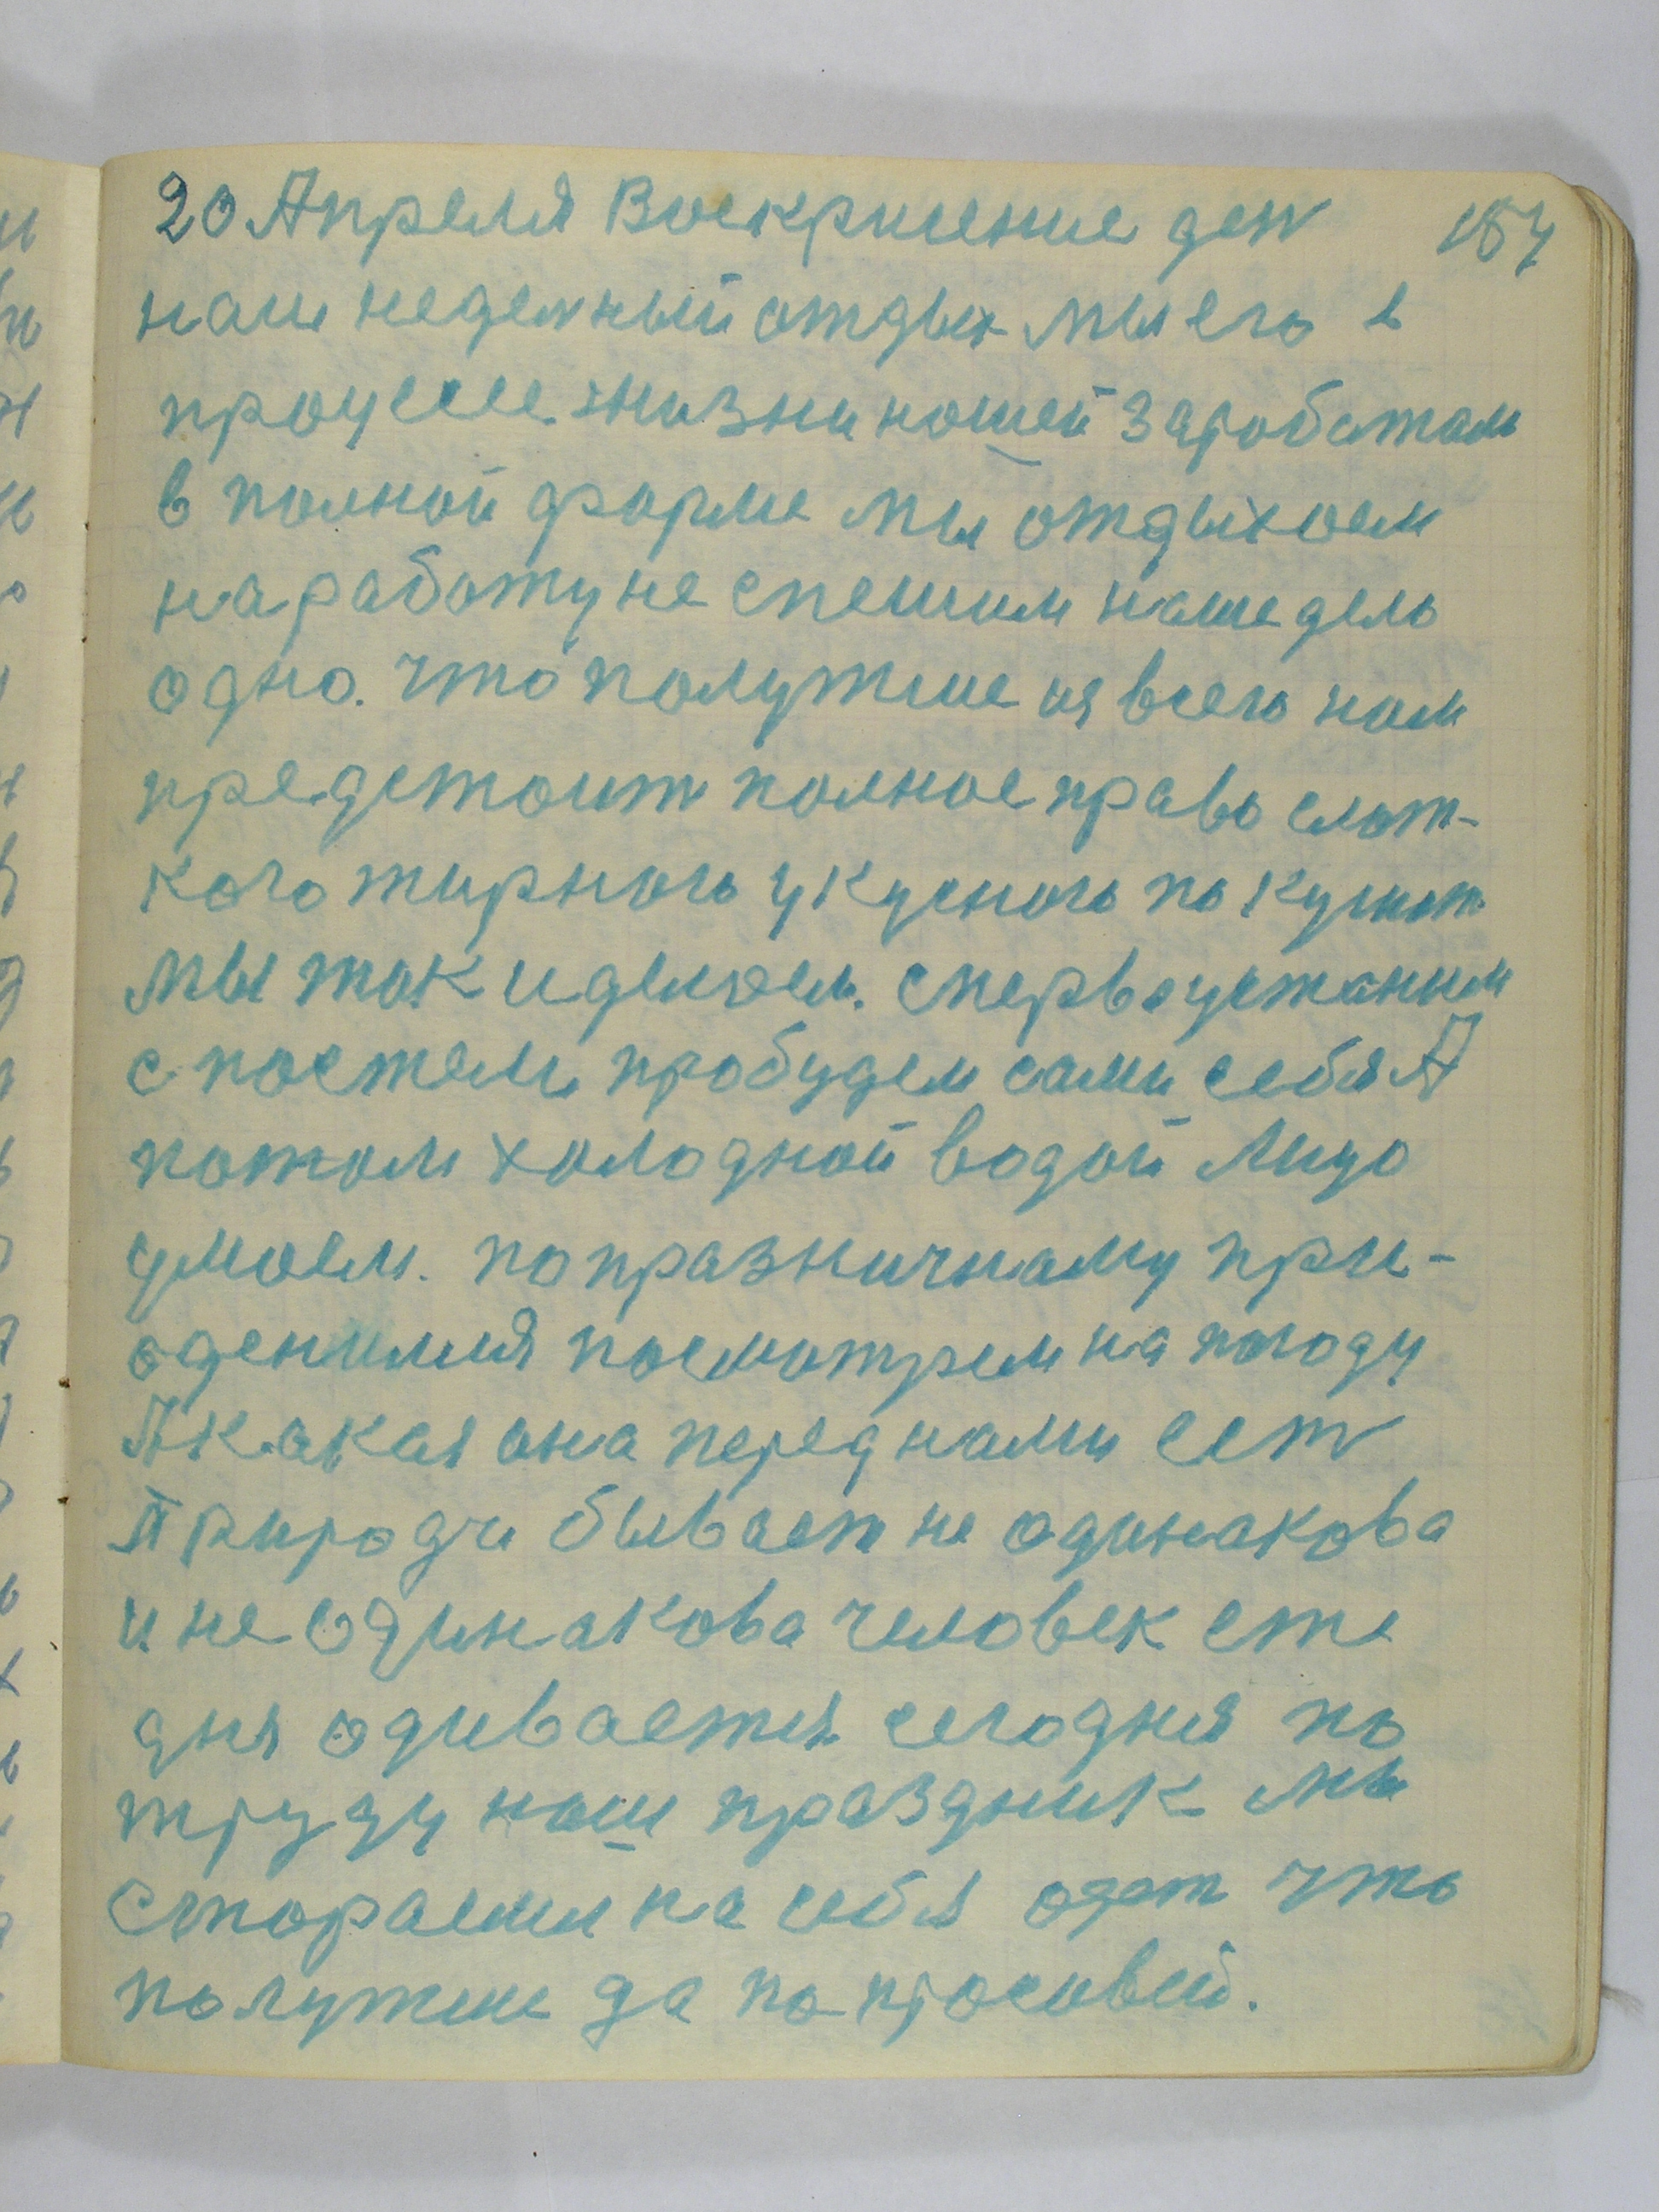 20 Апреля Воскрисение ден 157
наш неделный отдых мы его в
процессе жизни нашей заработали
в полной форме мы отдыхаем
на работу не спешим наше дело
одно. что получше из всего нам
предстоит полное право слат-
кого жирного укусного покушат
мы так и делаем. сперво устаним
с постели пробудем сами себя А
потом холодной водой лицо
умоем. по празничному при-
оденимся посмотрем на погоду
А какая она перед нами ест
Природа бывает не одинакова
и не одинакова человек сте
дня одивается сегодня по
труду наш праздник мы
стораемся на себя одет что
получше да по красивей.